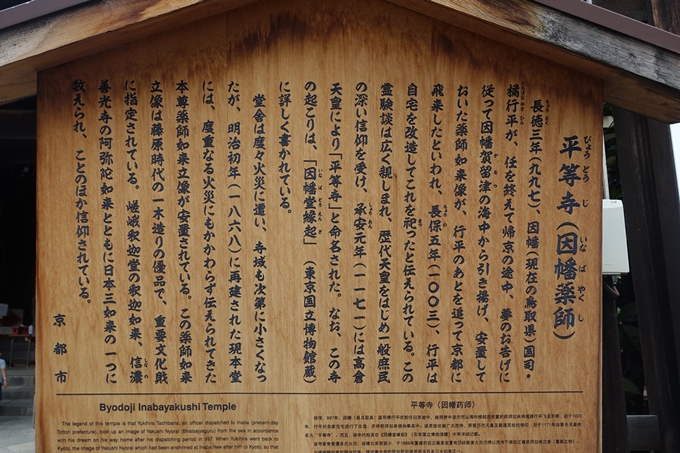 平等寺（因幡薬師）
長徳三年（九九七）、因幡（現在の鳥取県）国司・
橘行平が、任を終えて帰京の途中、夢のお告げに
従って因幡賀留津の海中から引き揚げ、安置して
おいた薬師如来像が、行平のあとを追って京都に
飛来したといわれ、長保五年（一〇〇三）、行平は
自宅を改造してこれを祀ったと伝えられている。この
霊験談は広く親しまれ、歴代天皇をはじめ一般庶民
の深い信仰を受け、承安元年（一一七一）には高倉
天皇により「平等寺」と命名された。なお、この寺
の起こりは、「因幡堂縁起」（東京国立博物館蔵）
に詳しく書かれている。
堂舎は度々火災に遭い、寺域も次第に小さくなっ
たが、明治初年（一八六八）に再建された現本堂
には、度重なる火災にもかかわらず伝えられてきた
本尊薬師如来立像が安置されている。この薬師如来
立像は藤原時代の一木造りの優品で、重要文化財
に指定されている。嵯峨釈迦堂の釈迦如来、信濃
善光寺の阿弥陀如来とともに日本三如来の一つに
数えられ、ことのほか信仰されている。
京都市
Byodoji Inabayakushi Temple
The legend of this temple is that Yukihira Tachibana, an officer dispatched to Inaba (present-day
Tottori prefecture), took up an image of Yakushi Nyorai (Bhaisajyaguru) from the sea in accordance
with his dream on his way home after his dispatching period in 997. When Yukihira went back to
Kyoto, the image of Yakushi Nyorai which had been enshrined at Inaba flew after him to Kyoto, so that
平等寺（因幡药师）